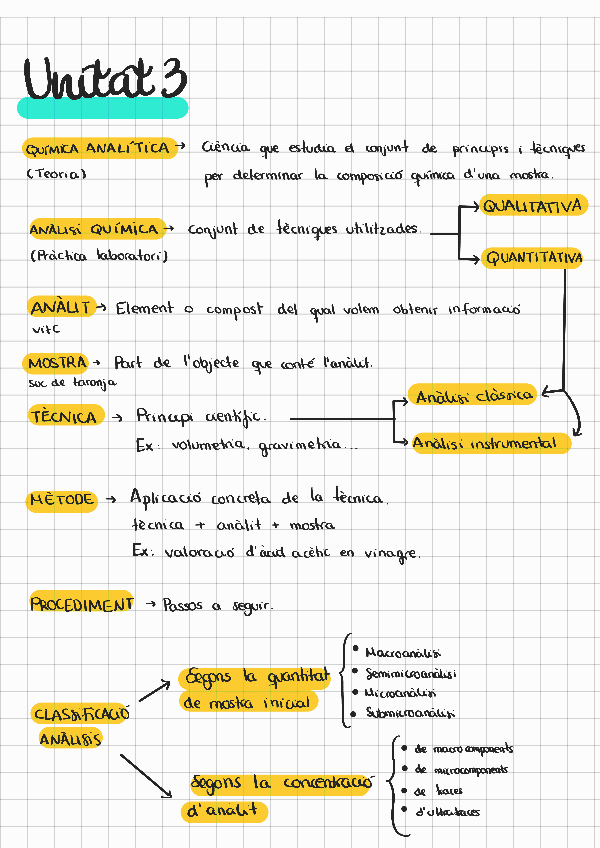 Unitat 3
QUÍMICA ANALÍTICA → Ciència que estudia el conjunt de principis i tècniques
(Teoria) per determinar la composició química d'una mostra.
QUALITATIVA
ANÀLISI QUÍMICA → Conjunt de tècniques utilitzades.
(Pràctica laboratori)
QUANTITATIVA
ANÀLIT → Element o compost del qual volem obtenir informació
vitC
MOSTRA → Part de l'objecte que conté l'anàlit.
suc de taronja
Anàlisi clàssica
TÈCNICA → Principi científic.
Ex: volumetria, gravimetria...
Anàlisi instrumental
MÈTODE → Aplicació concreta de la tècnica.
tècnica + anàlit + mostra
Ex: valoració d'àcid acètic en vinagre.
PROCEDIMENT → Passos a seguir.
Segons la quantitat
de mostra inicial
• Macroanàlisi
• Semimicroanàlisi
• Microanàlisi
• Submicroanàlisi
CLASSIFICACIÓ
ANÀLISIS
Segons la concentració
d'analit
• de macrocomponents
• de microcomponents
• de traces
• d'ultratraces